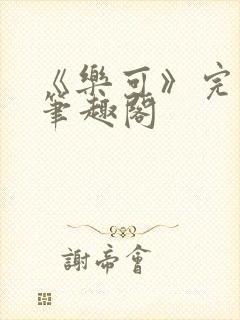 《樂可》完
筆趣閣
謝帝會